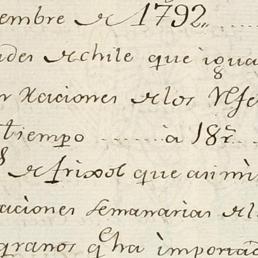 embre de 1792,
des de chile que igua
n Raciones de los
tiempo ...... à 18 r.
s de frixol que asimi
aciones semanarias de l
granos q ha importad